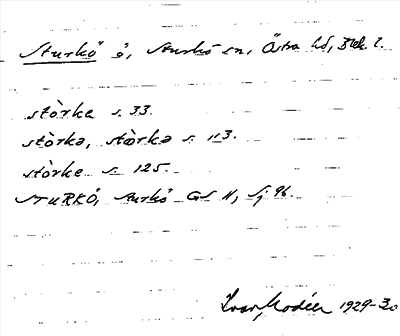 Sturkö ö, Sturkö sn, Östra hd, Blek. l.
stòrkə s. 33.
stòrkə, stòrkə s. 113.
stòrkə s. 125.
STURKÖ, Sturkö GS II, Sj 96.
Ivar Modéer 1929-30